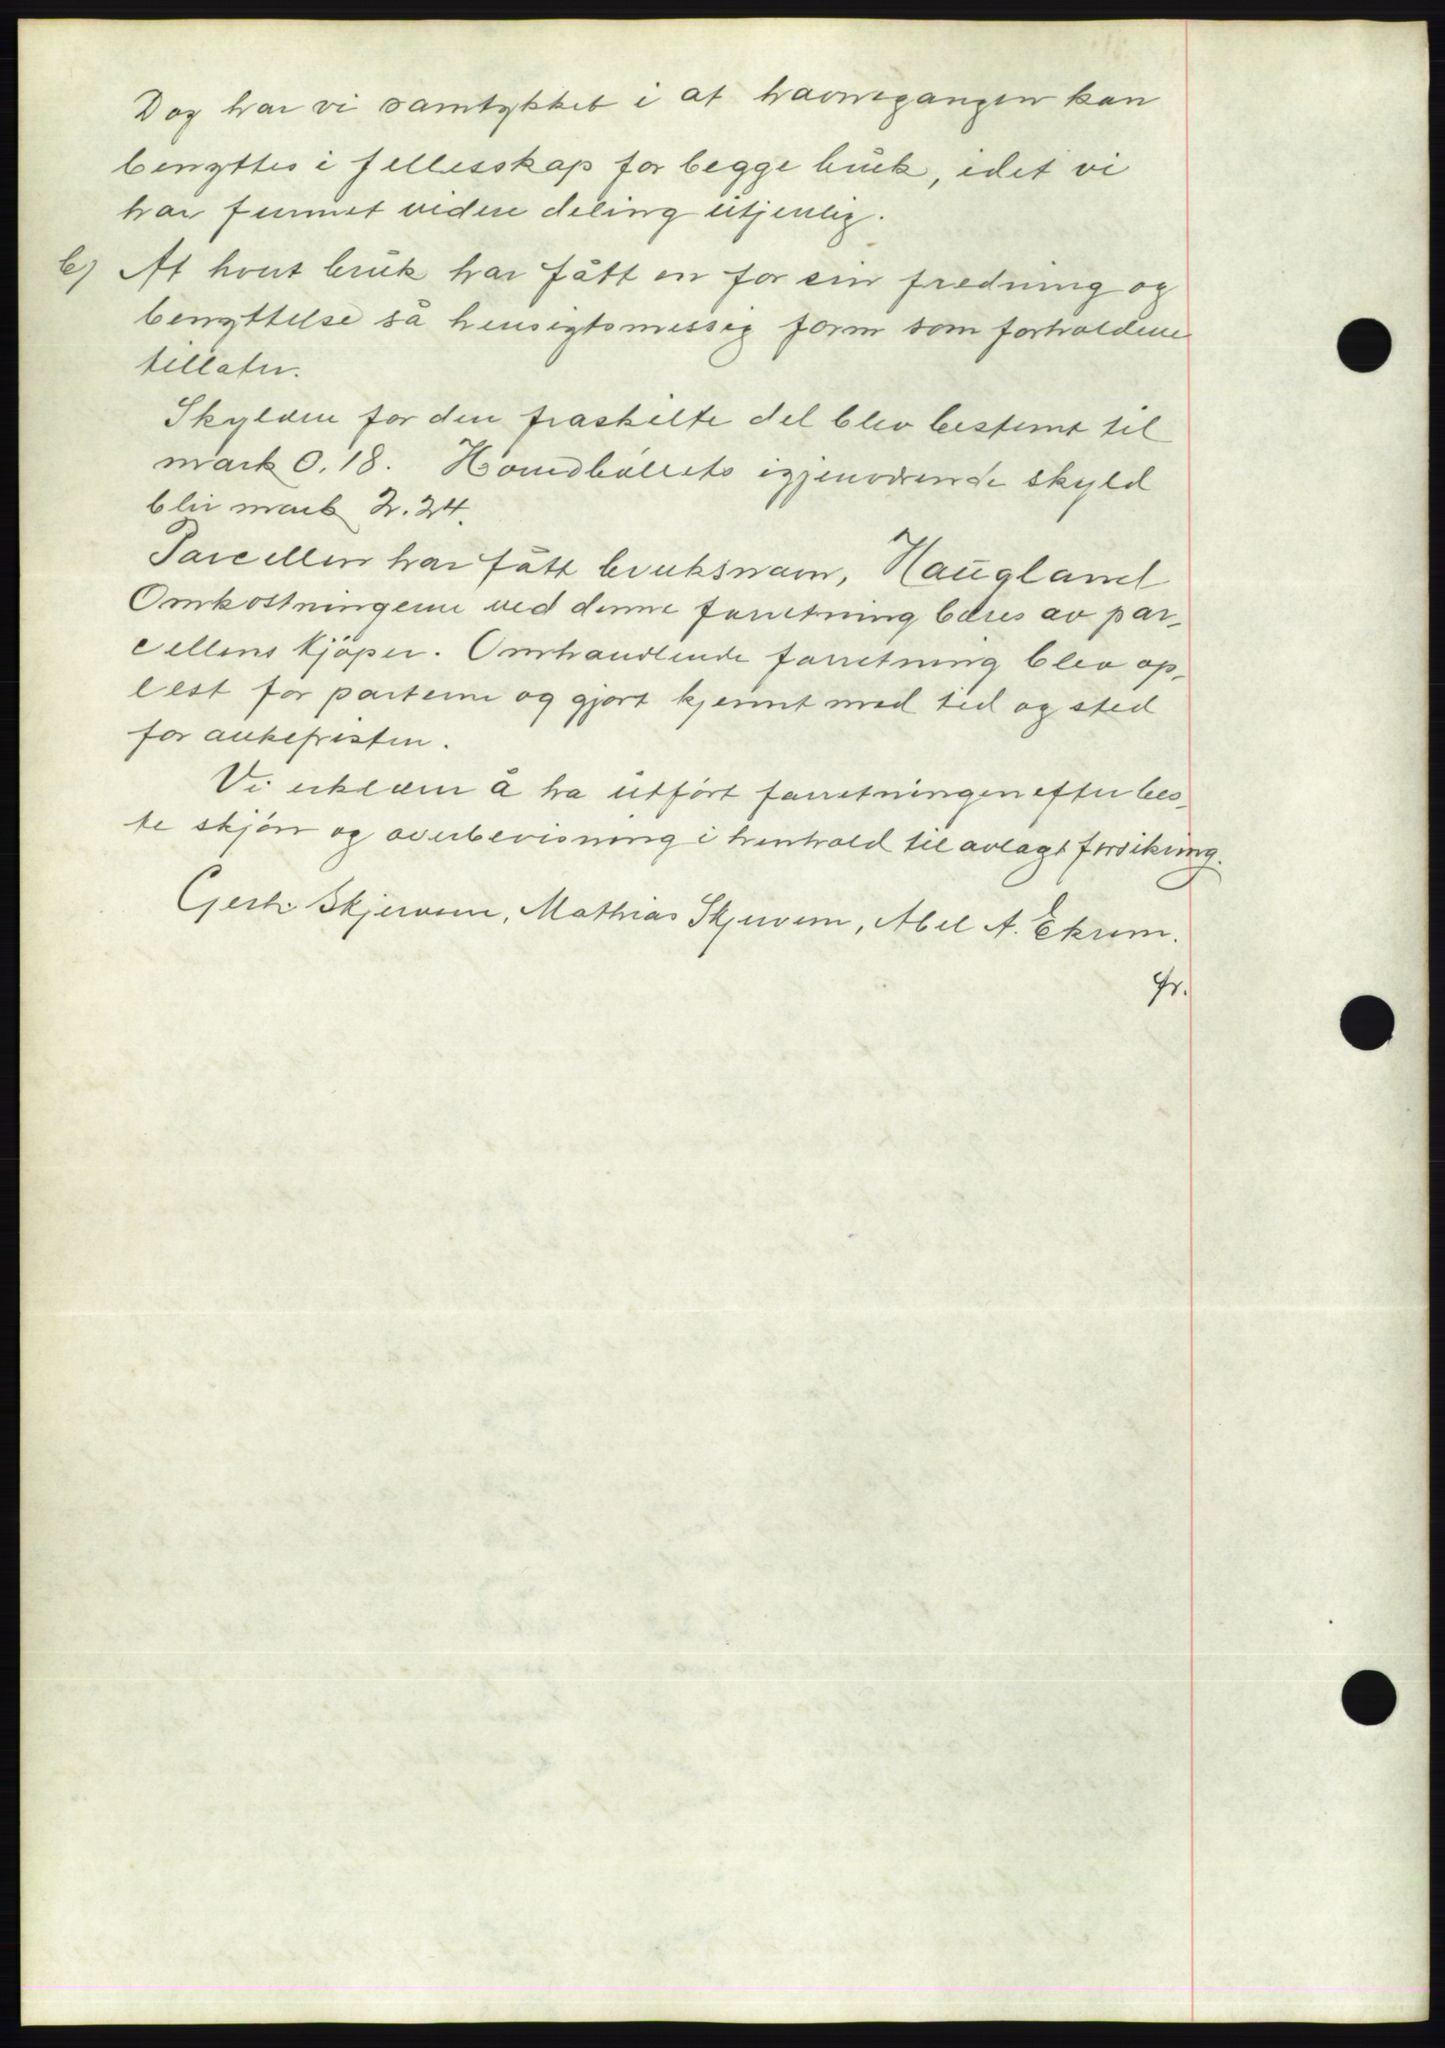 Dog har vi samtykket i at havnegangen kan
benyttes i fellesskap for begge bruk, idet vi
har funnet videre deling utjenlig.
b) At hvert bruk har fått en for sin fredning og
benyttelse så hensigtsmessig form som forholdene
tillater.
Skylden for den fraskilte del blev bestemt til
mark 0.18. Hovedbølets igjenværende skyld
blir mark 2.24.
Parcellen har fått bruksnavn, Haugland
Omkostningene ved denne forretning bæres av par-
cellens kjøper. Omhandlende forretning blev op-
lest for partene og gjort kjennt med tid og sted
for ankefristen.
Vi erklærer å ha utført forretningen efter bes-
te skjøn og overbevisning i henhold til avlagt forsikring.
Gerh. Skjerven, Mathias Skjerven, Abel A. Ekrem.